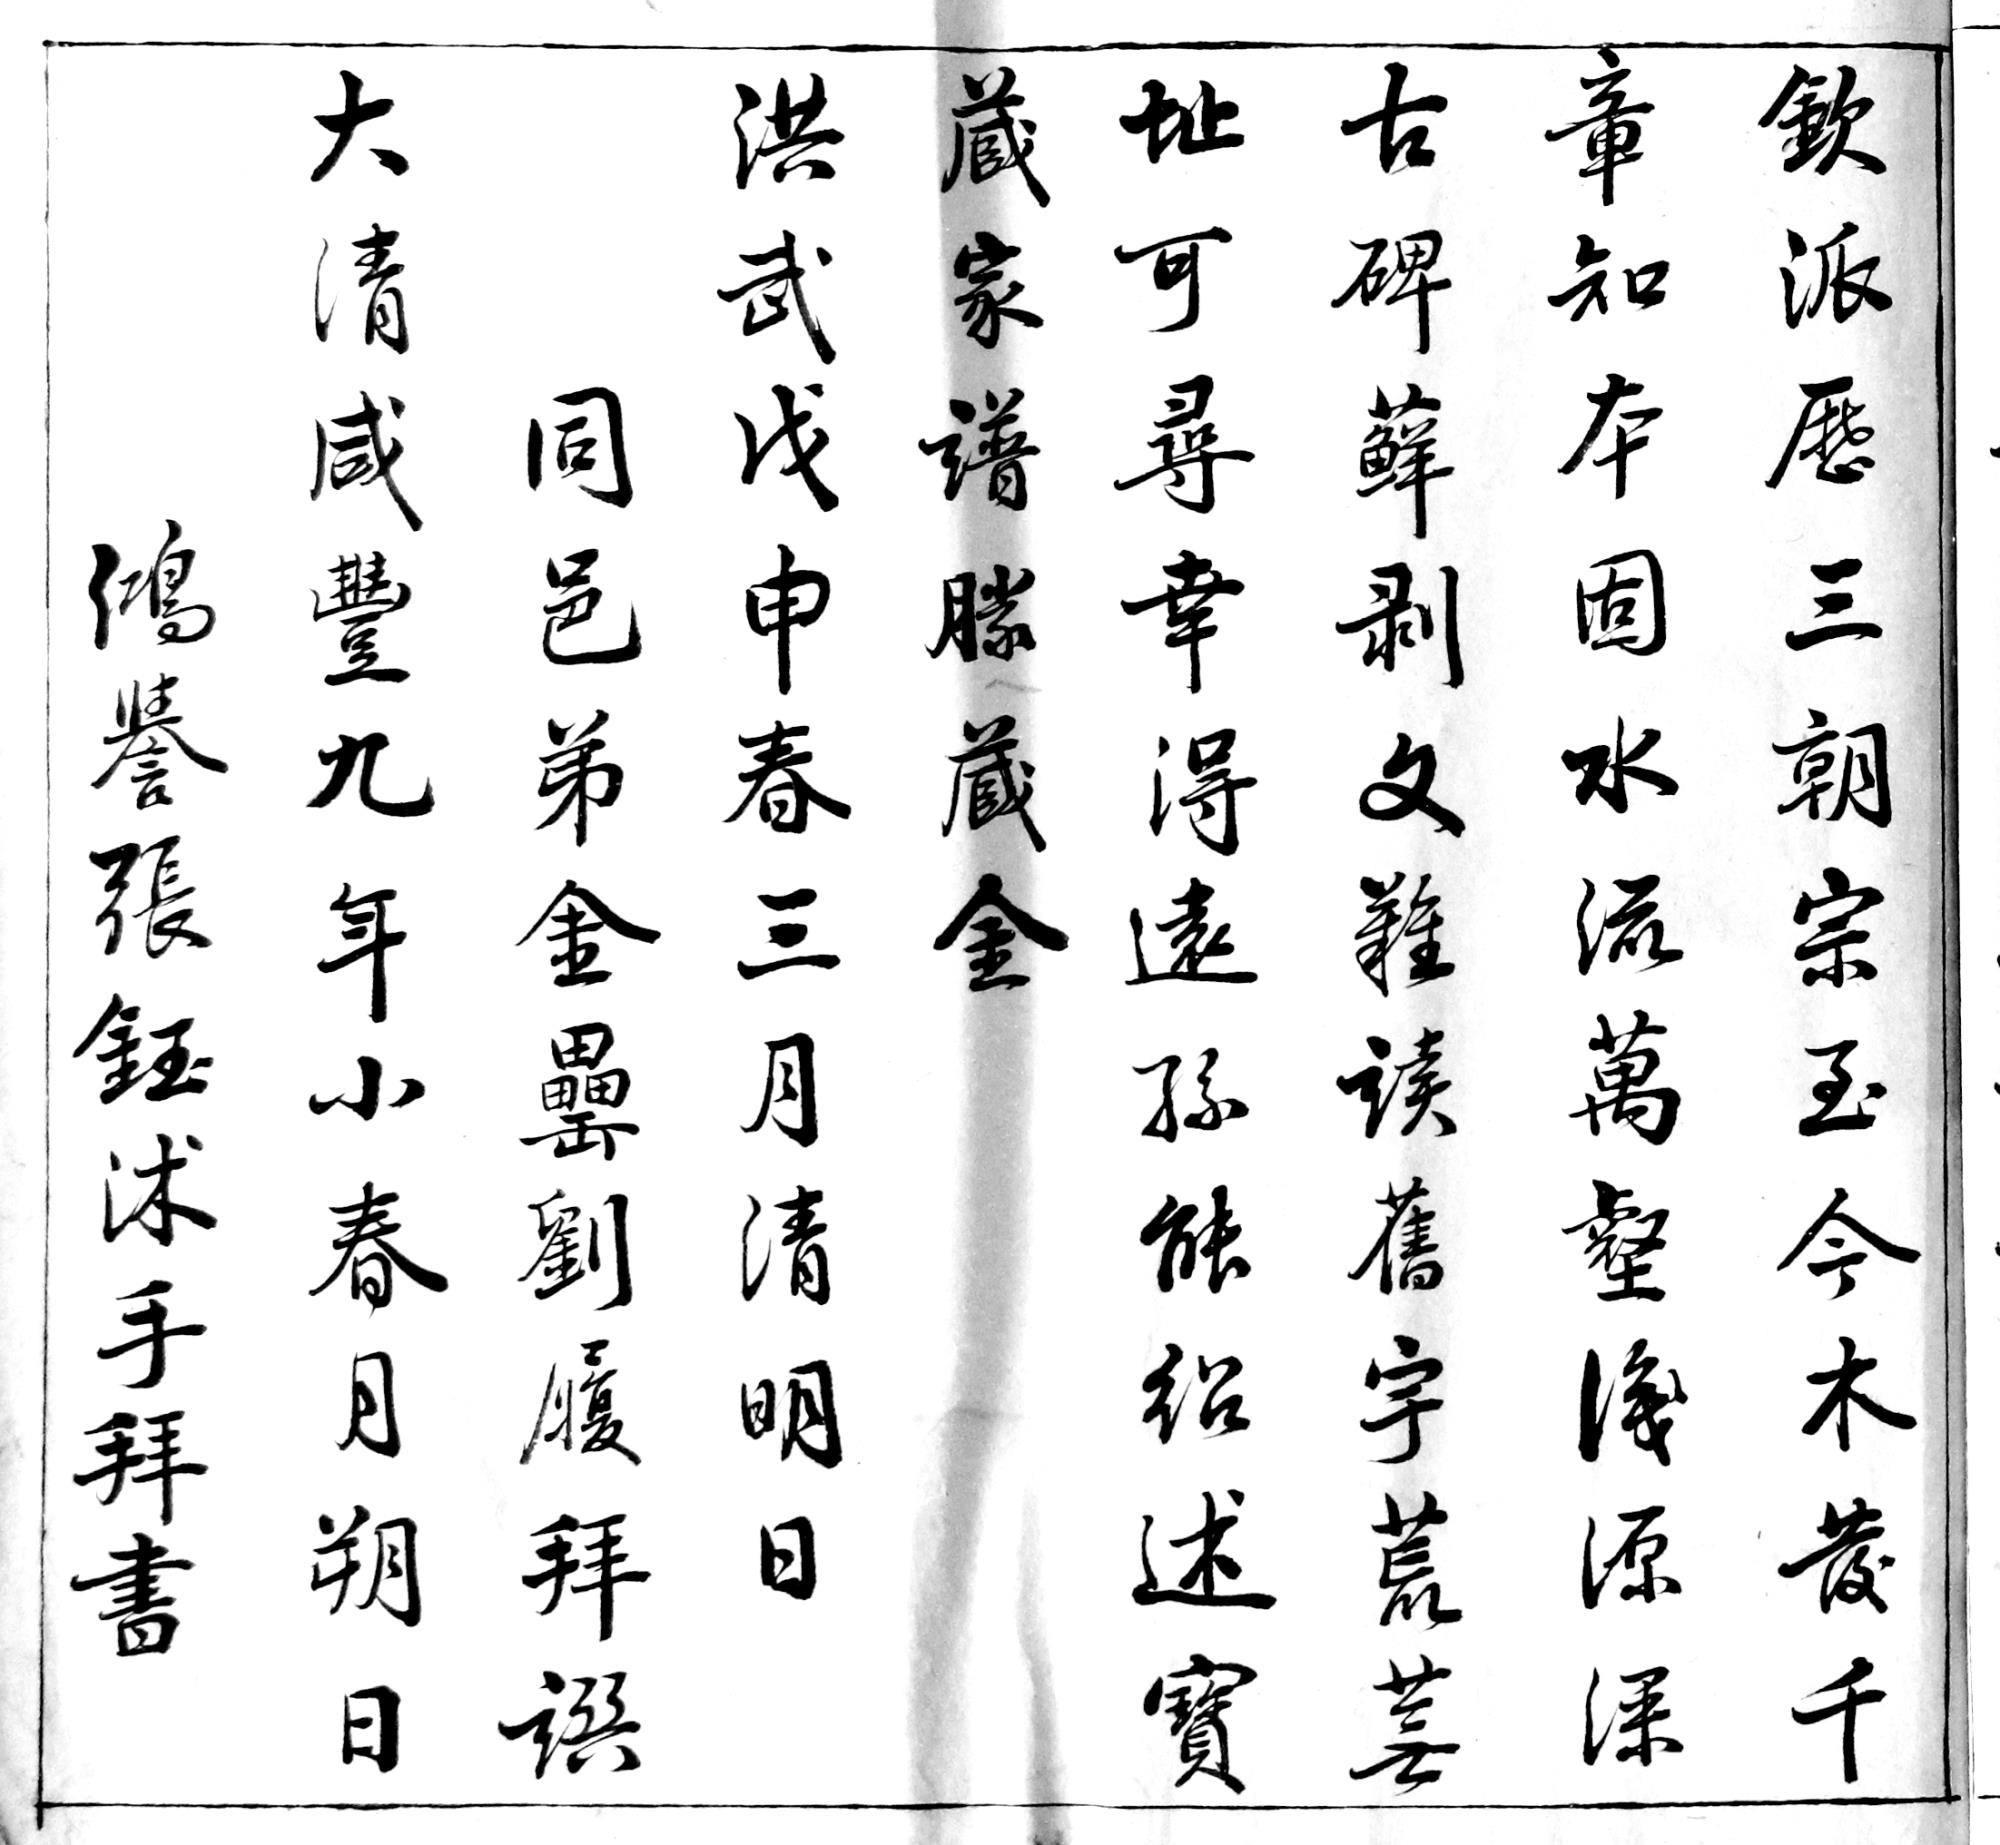 欽派歷三朝宗至今木發千
章知本固水流萬壑後源深
古碑蘚剥文難讀舊宇荒蕪
址可尋幸得遠孫能紹述寶
蔵家譜勝蔵金
洪武戊申春三月清明日
同邑弟金罍劉履拜譔
大清咸豐九年小春月朔日
鴻譽張鈺沭手拜書